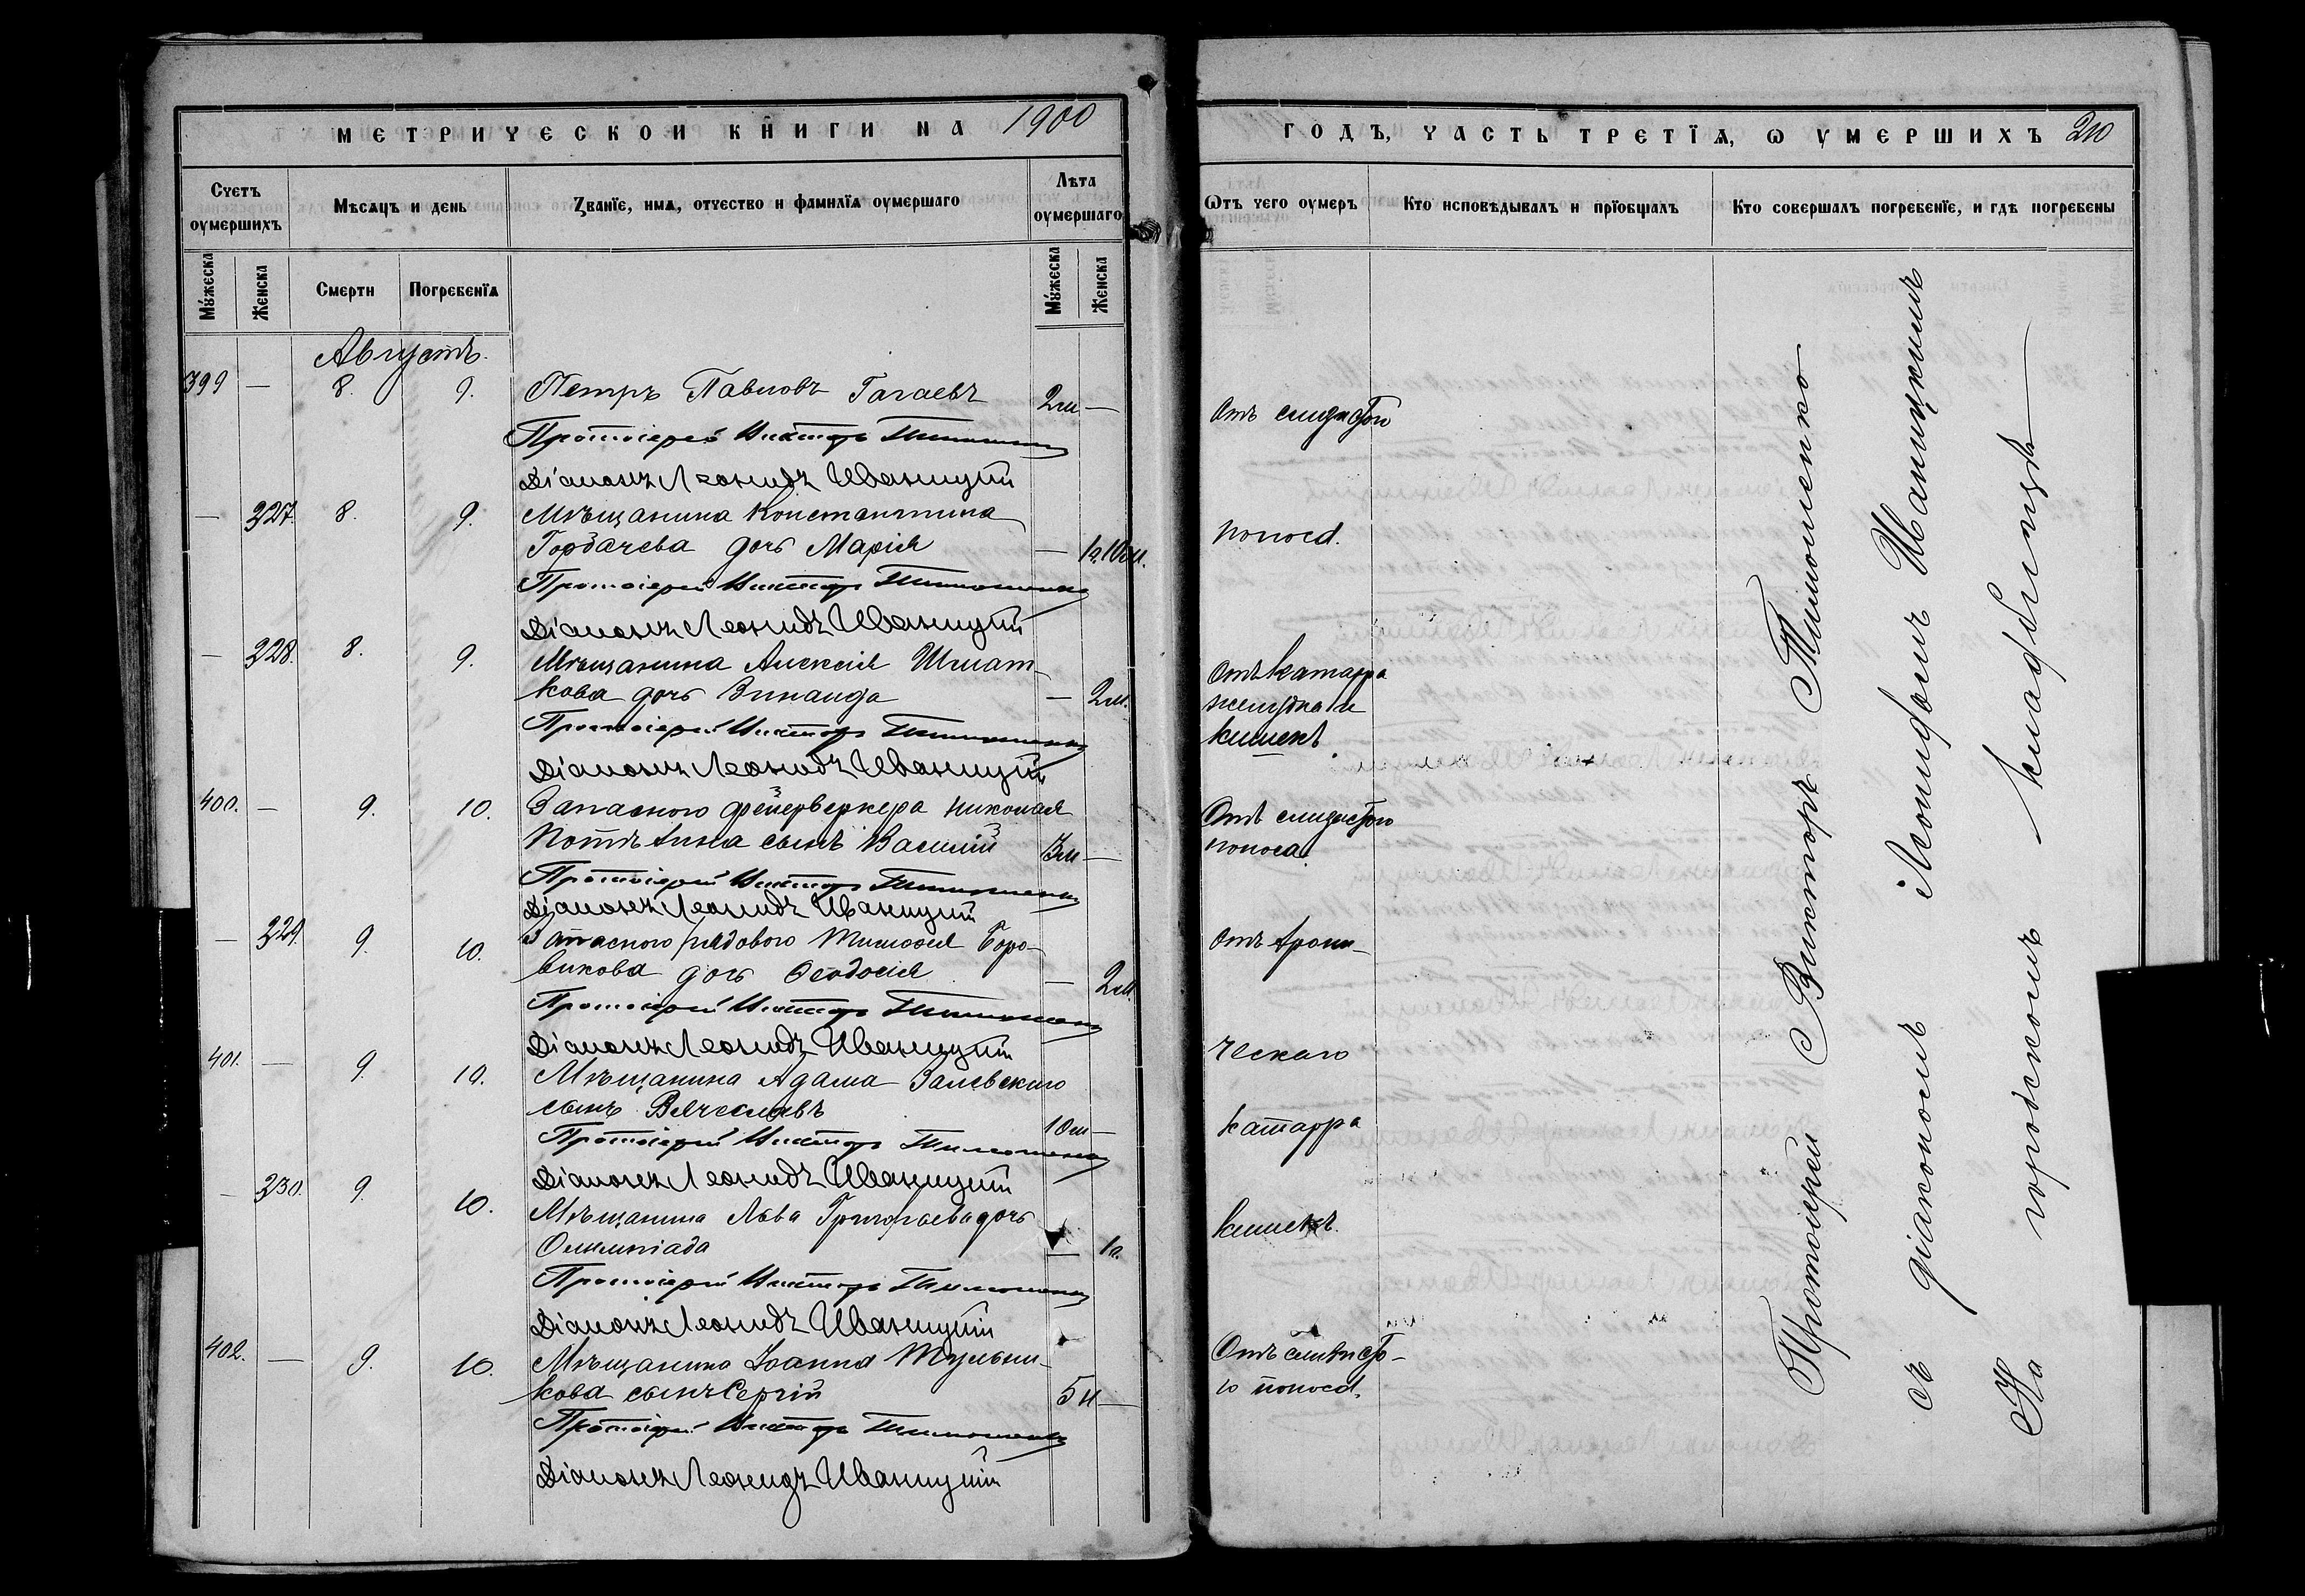 МЕТРИЧЕСКОЙ КНИГИ НА 1900
Счетъ оумершихъ
Мѣсяцъ и день
Званїе, имѧ, отчество и фамилїѧ оумершаго
Лѣта оумершаго
Мꙋжеска
Женска
Смерти
Погребенїѧ
Мꙋжеска
Женска
Августъ.
399 — 8. 9. Петръ Павловъ Гагаевъ 2м —
Протоіерей Викторъ Тимошенко
Діаконъ Леонидъ Иваницкій
— 227. 8. 9. Мѣщанина Константина
Горбачева дочь Марія — 1г.10м.
Протоіерей Викторъ Тимошенко
Діаконъ Леонидъ Иваницкій
— 228. 8. 9. Мѣщанина Алексія Шмат-
кова дочь Зинаида — 2м.
Протоіерей Викторъ Тимошенко
Діаконъ Леонидъ Иваницкій
400. — 9. 10. Запасного фейерверкера Николая
сынъ Василій 3м —
Протоіерей Викторъ Тимошенко
Діаконъ Леонидъ Иваницкій
— 229. 9. 10. Запасного рядового Тимофея Боро-
викова дочь Ѳеодосія — 2м.
Протоіерей Викторъ Тимошенко
Діаконъ Леонидъ Иваницкій
401. — 9. 10. Мѣщанина Адама Залевскаго
сынъ Вячеславъ 10м —
Протоіерей Викторъ Тимошенко
Діаконъ Леонидъ Иваницкій
— 230. 9. 10. Мѣщанина Льва Григорьева дочь
Олимпіада — 1г.
Протоіерей Викторъ Тимошенко
Діаконъ Леонидъ Иваницкій
402. — 9. 10. Мѣщанина Іоанна Мульни-
кова сынъ Сергій 5м —
Протоіерей Викторъ Тимошенко
Діаконъ Леонидъ Иваницкій
ГОДЪ, ЧАСТЬ ТРЕТЇѦ, Ѡ УМЕРШИХЪ 210
Ѿтъ чего оумеръ
Кто исповѣдывалъ и прїобщалъ
Кто совершалъ погребенїе, и гдѣ погребены
Отъ слизистой
поноса.
Отъ катарра
желудка и
кишекъ.
Отъ слизистого
поноса.
Отъ хрони-
ческаго
катарра
кишекъ.
Отъ слизисто-
го поноса.
Протоіерей Викторъ Тимошенко
съ діакономъ Леонидомъ Иваницкимъ
На городскомъ кладбищѣ